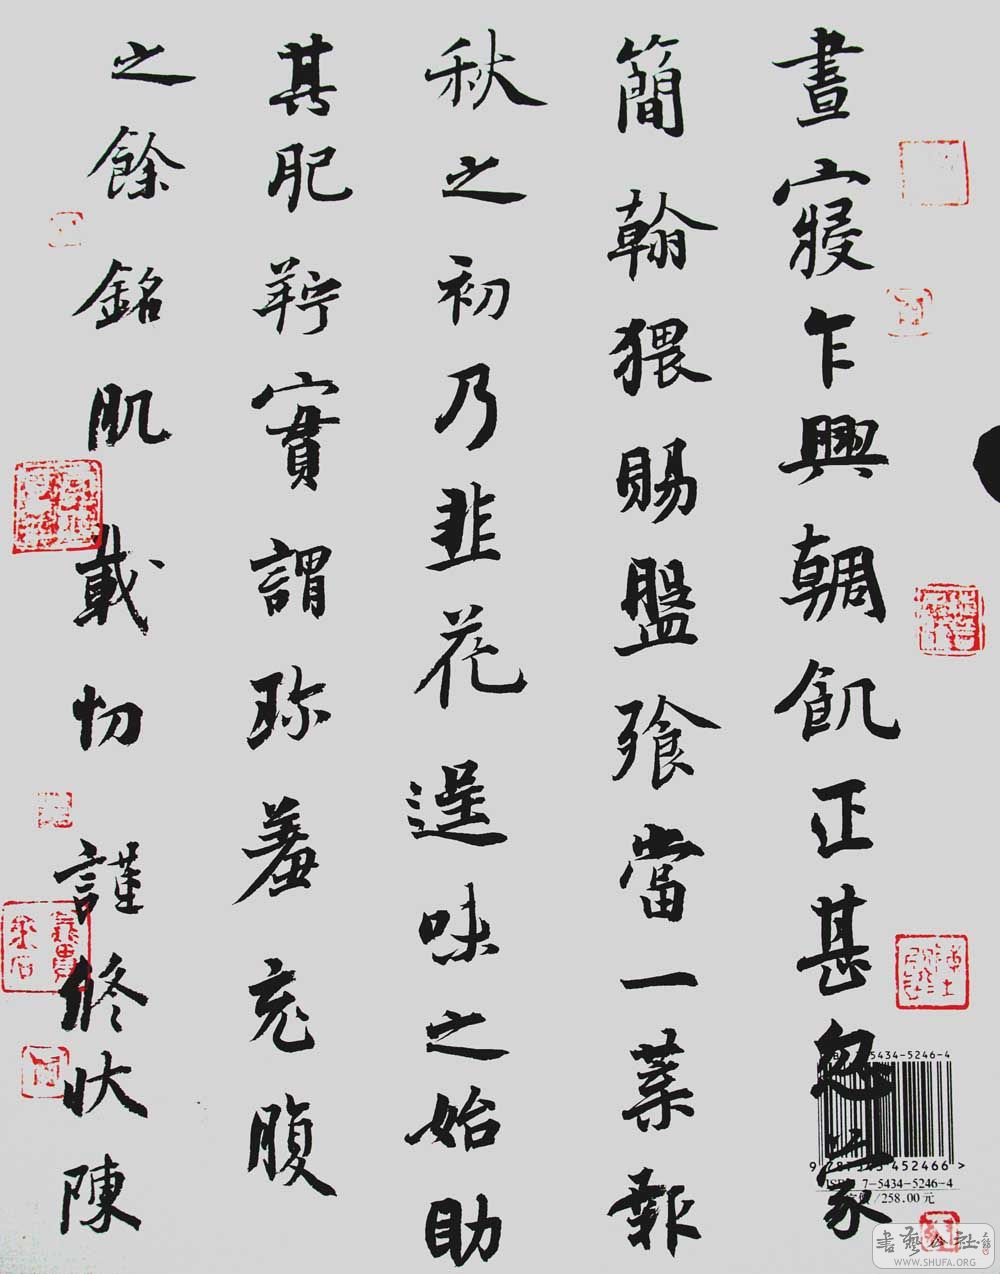 晝寢乍興輖飢正甚忽蒙
簡翰猥賜盤飧當一葉報
秋之初乃韭花逞味之始助
其肥羜實謂珍羞充腹
之餘銘肌載切謹修狀陳
5434-5246-4
452466 >
ISBN 7-5434-5246-4
/258.00元
WWW.SHUFA.ORG